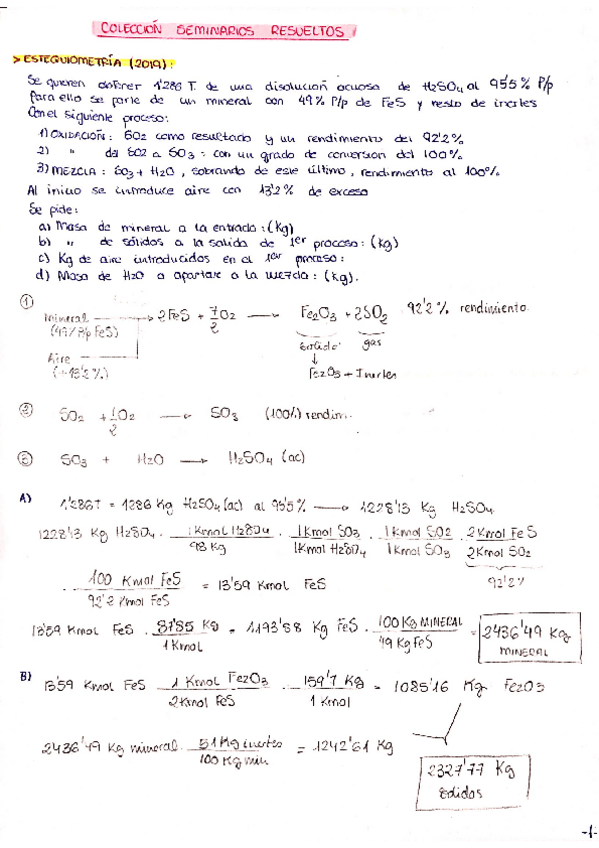 COLECCIÓN SEMINARIOS RESUELTOS
> ESTEQUIOMETRÍA (2019):
Se quieren obtener 1'286 T. de una disolución acuosa de H2SO4 al 95'5% P/p
Para ello se parte de un mineral con 49% P/p de FeS y resto de inertes
Con el siguiente proceso:
1) OXIDACIÓN: SO2 como resultado y un rendimiento del 92'2%
2) " del SO2 a SO3: con un grado de conversión del 100%
3) MEZCLA: SO3 + H2O, sobrando de este último, rendimiento al 100%
Al inicio se introduce aire con 13'2% de exceso
Se pide:
a) Masa de mineral a la entrada: (Kg)
b) " de sólidos a la salida de 1er proceso: (kg)
c) Kg de aire introducidos en el 1er proceso:
d) Masa de H2O a aportar a la mezcla: (kg).
① Mineral → 2FeS + 7/2 O2 → Fe2O3 + 2SO2 92'2% rendimiento.
(49% P/p FeS) sólido gas
Aire
(+13'2%) Fe2O3 + Inertes
② SO2 + 1/2 O2 → SO3 (100%) rendim.
③ SO3 + H2O → H2SO4 (ac)
A) 1'286T = 1286 Kg H2SO4 (ac) al 95'5% → 1228'13 Kg H2SO4
1228'13 Kg H2SO4 · 1Kmol H2SO4/98 Kg · 1Kmol SO3/1Kmol H2SO4 · 1Kmol SO2/1Kmol SO3 · 2Kmol FeS/2Kmol SO2
92'2%
· 100 Kmol FeS/92'2 Kmol FeS = 13'59 Kmol FeS
13'59 Kmol FeS · 87'85 Kg/1Kmol = 1193'88 Kg FeS · 100 Kg MINERAL/49 Kg FeS = 2436'49 Kg MINERAL
B) 13'59 Kmol FeS · 1 Kmol Fe2O3/2Kmol FeS · 159'7 Kg/1 Kmol = 1085'16 Kg Fe2O3
2436'49 Kg mineral · 51 Kg inertes/100 Kg min = 1242'61 Kg
2327'77 Kg sólidos
-1-